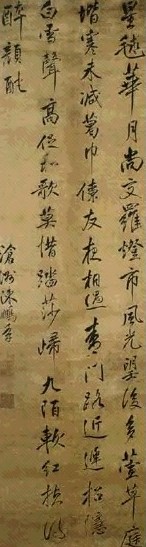 星毬華月尚交羅燈市風光望後多萱草庭
堦寒未減葛巾儔友夜相過青門路近連招隱
白雪聲高從和歌莫惜踏莎歸九陌軟紅
醉顏酡
滄洲陳鵬年